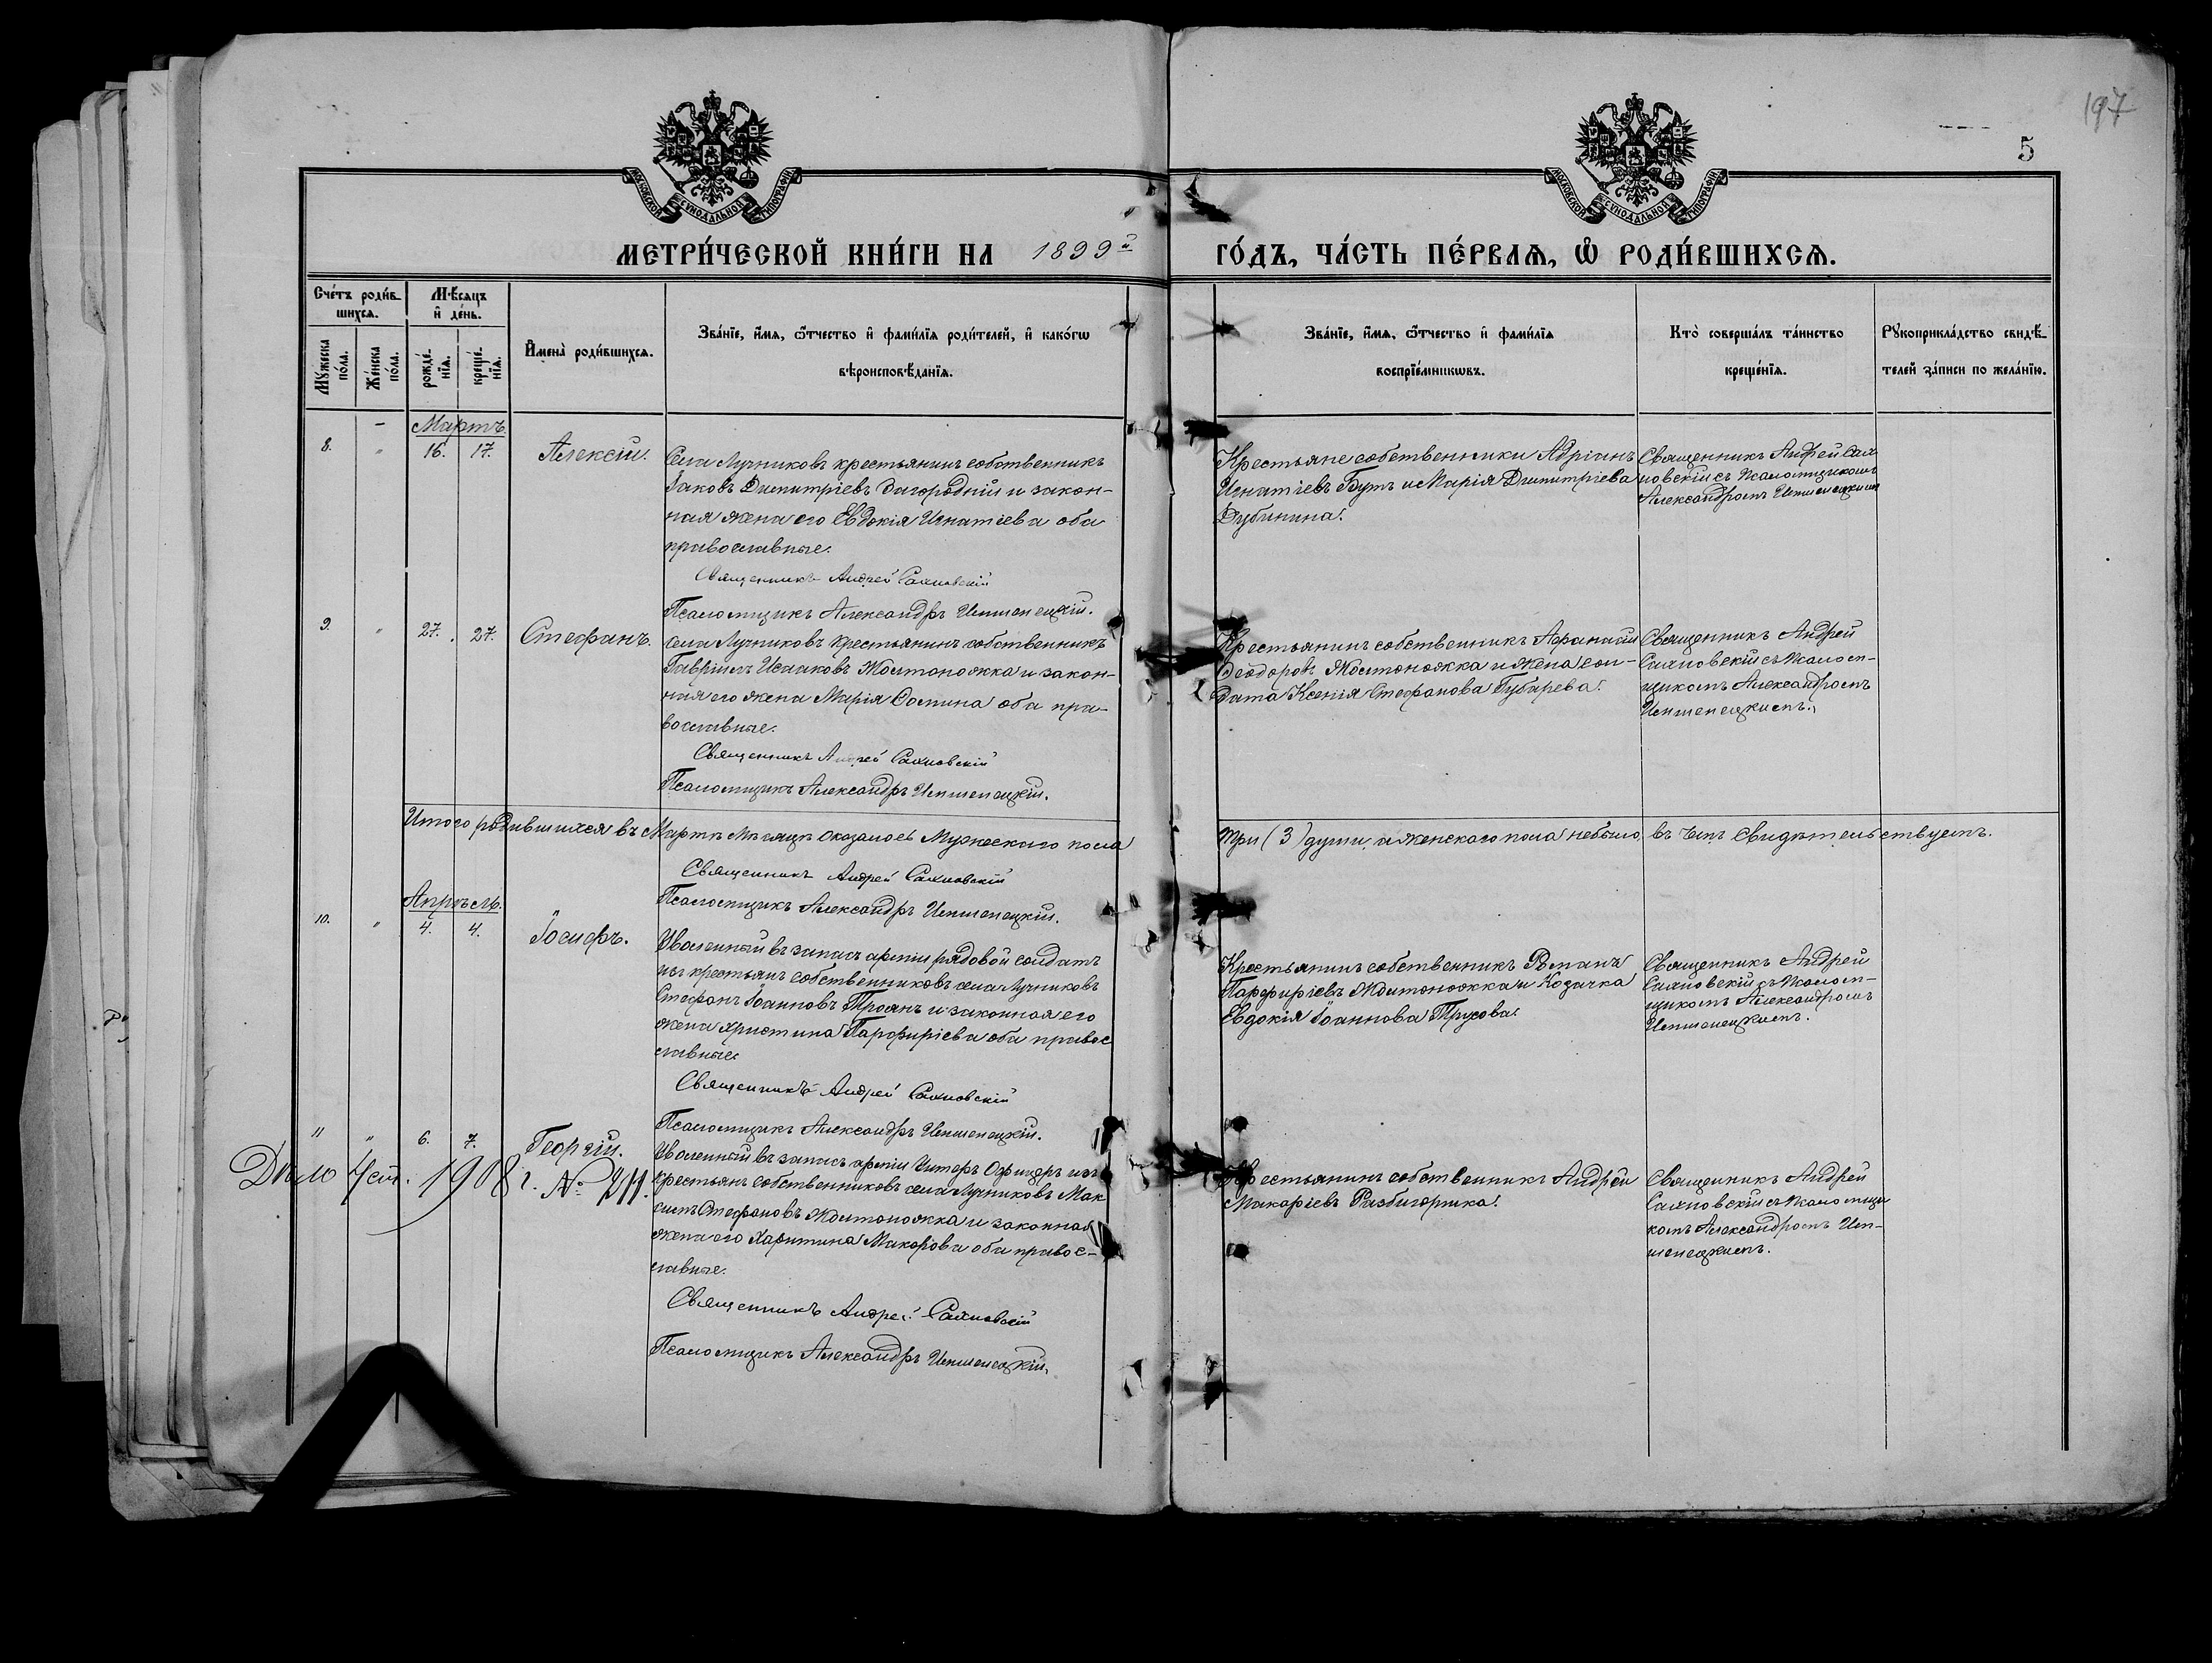 197
5
МОСКОВСКОЙ СѴНОДАЛЬНОЙ ТИПОГРАФІИ
МОСКОВСКОЙ СѴНОДАЛЬНОЙ ТИПОГРАФІИ
МЕТРИ́ЧЕСКОЙ КНИ́ГИ НА 1899й ГО́ДЪ, ЧА́СТЬ ПЕ́РВАѦ, Ѽ РОДИ́ВШИХСѦ.
Сче́тъ роди́в-
шихсѧ.
Мѣ́сѧцъ
и҆ де́нь.
Мꙋ́жеска
по́ла.
Же́нска
по́ла.
рожде́-
нїѧ.
креще́-
нїѧ.
И҆мена̀ роди́вшихсѧ.
Зва́нїе, и҆́мѧ, ѻ҆́тчество и҆ фами́лїѧ роди́телей, и҆ како́гѡ
вѣроисповѣ́данїѧ.
Зва́нїе, и҆́мѧ, ѻ҆́тчество и҆ фами́лїѧ
воспрїе́мникѡвъ.
Кто̀ соверша́лъ та́инство
креще́нїѧ.
Рꙋкоприкла́дство свидѣ́-
телей за́писи по жела́нїю.
Мартъ
8. " 16. 17. Алексій.
Села Лучниковъ крестьянинъ собственникъ
Іаковъ Димитріевъ Загородній и закон-
ная жена его Евдокія Игнатіева оба
православные.
Священникъ Андрей Сахновскій
Псаломщикъ Александръ
Крестьяне собственники Адріанъ
Игнатіевъ Бутъ и Марія Димитріева
Дубинина.
Священникъ Андрей Сах-
новскій съ псаломщикомъ
Александромъ
9. " 27. 27. Стефанъ.
Села Лучниковъ крестьянинъ собственникъ
Гавріилъ Исааковъ Жолтоножка и закон-
ная его жена Марія Фомина оба пра-
вославные.
Священникъ Андрей Сахновскій
Псаломщикъ Александръ
Крестьянинъ собственникъ Афанасій
Феодоровъ Жолтоножка и жена сол-
дата Ксенія Стефанова Губарева.
Священникъ Андрей
Сахновскій съ псалом-
щикомъ Александромъ
Итого родившихся въ Мартѣ Мѣсяцѣ оказалось Мужескаго пола три (3) души, а женскаго пола небыло, въ чемъ свидѣтельствуемъ.
Священникъ Андрей Сахновскій
Псаломщикъ Александръ
Апрѣль.
10. " 4. 4. Іосифъ.
Уволенный въ запасъ арміи рядовой солдатъ
изъ крестьянъ собственниковъ села Лучниковъ
Стефанъ Іоанновъ Троянъ и законная его
жена Христина Парфиріева оба правос
лавные.
Священникъ Андрей Сахновскій
Псаломщикъ Александръ
Крестьянинъ собственникъ Романъ
Парфиріевъ Жолтоножка и Козачка
Евдокія Іоаннова Трусова.
Священникъ Андрей
Сахновскій съ псалом-
щикомъ Александромъ
11 " 6. 7. Георгій.
Дѣло 1908 г. № 211.
Уволенный въ запасъ арміи Унтеръ Офицеръ изъ
крестьянъ собственниковъ села Лучниковъ Мак
симъ Стефановъ Жолтоножка и законная
жена его Харитина Макарова оба правос-
лавные.
Священникъ Андрей Сахновскій
Псаломщикъ Александръ
Крестьянинъ собственникъ Андрей
Макаріевъ Разбигорika
Священникъ Андрей
Сахновскій съ псаломщи
комъ Александромъ